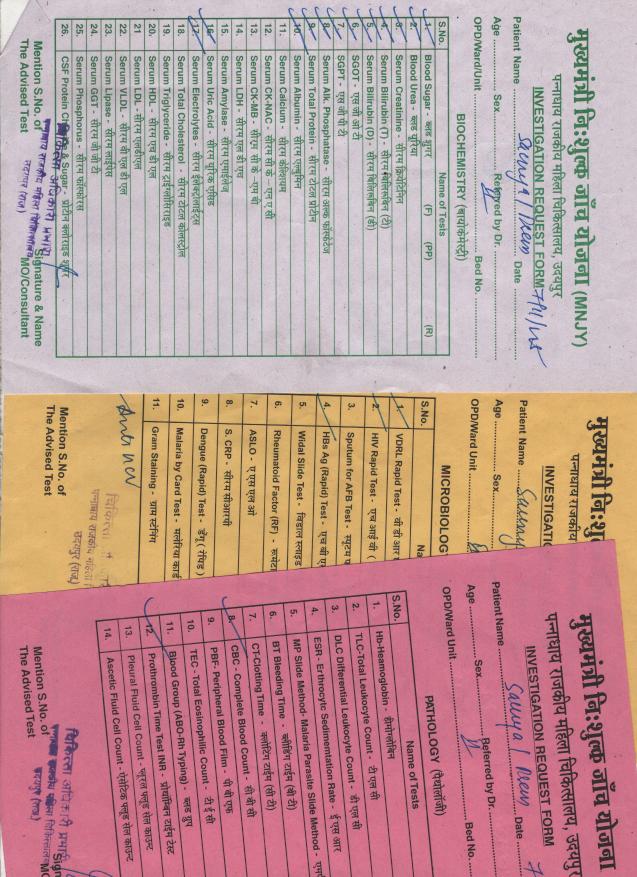 मुख्यमंत्री निःशुल्क जाँच योजना (MNJY)
पन्नाधाय राजकीय महिला चिकित्सालय, उदयपुर
INVESTIGATION REQUEST FORM
Patient Name Date
Age Sex Referred by Dr.
OPD/Ward/Unit Bed No.
BIOCHEMISTRY (बायोकेमेस्ट्री)
S.No. Name of Tests
1. Blood Sugar - ब्लड शुगर (F) (PP) (R)
2. Blood Urea - ब्लड यूरिया
3. Serum Creatinine - सीरम क्रियेटिनिन
4. Serum Bilirubin (T) - सीरम बिलिरूबिन (टी)
5. Serum Bilirubin (D) - सीरम बिलिरूबिन (डी)
6. SGOT - एस जी ओ टी
7. SGPT - एस जी पी टी
8. Serum Alk. Phosphatase - सीरम अल्क फास्फेटेज
9. Serum Total Protein - सीरम टोटल प्रोटीन
10. Serum Albumin - सीरम एल्बुमिन
11. Serum Calcium - सीरम केल्शियम
12. Serum CK-NAC - सीरम सी के - एन ए सी
13. Serum CK-MB - सीरम सी के - एम बी
14. Serum LDH - सीरम एल डी एच
15. Serum Amylase - सीरम एमाईलेज
16. Serum Uric Acid - सीरम यूरिक एसिड
17. Serum Electrolytes - सीरम इलेक्ट्रोलाईट्स
18. Serum Total Cholesterol - सीरम टोटल कोलेस्ट्रोल
19. Serum Triglyceride - सीरम ट्राईग्लीसिराइड
20. Serum HDL - सीरम एच डी एल
21. Serum LDL - सीरम एलडीएल
22. Serum VLDL - सीरम वी एल डी एल
23. Serum Lipase - सीरम लाईपेस
24. Serum GGT - सीरम जी जी टी
25. Serum Phosphorus - सीरम फॉस्फोरस
26. CSF Protein & Sugar - प्रोटीन क्लोराइड शुगर
चिकित्सा अधिकारी प्रभारी
पन्नाधाय राजकीय महिला चिकित्सालय
उदयपुर (राज.)
Mention S.No. of Signature & Name
The Advised Test MO/Consultant
मुख्यमंत्री निःशु
पन्नाधाय राजकीय
INVESTIGATIO
Patient Name
Age Sex
OPD/Ward Unit
MICROBIOLOG
S.No. Na
1. VDRL Rapid Test - वी डी आर
2. HIV Rapid Test - एच आई वी (
3. Sputum for AFB Test - स्पूटम ए
4. HBs Ag (Rapid) Test - एच बी ए
5. Widal Slide Test - विडाल स्लाइड
6. Rheumatoid Factor (RF) - रूमेटा
7. ASLO - ए एस एल ओ
8. S. CRP - सीरम सीआरपी
9. Dengue (Rapid) Test - डेंगू (रेपिड)
10. Malaria by Card Test - मलेरिया कार्ड
11. Gram Staining - ग्राम स्टेनिंग
Mention S.No. of
The Advised Test
मुख्यमंत्री निःशुल्क जाँच योजना
पन्नाधाय राजकीय महिला चिकित्सालय, उदयपुर
INVESTIGATION REQUEST FORM
Patient Name Date
Age Sex Referred by Dr.
OPD/Ward Unit Bed No.
PATHOLOGY (पैथोलॉजी)
S.No. Name of Tests
1. Hb-Heamoglobin - हीमोग्लोबिन
2. TLC-Total Leukocyte Count - टी एल सी
3. DLC Differential Leukocyte Count - डी एल सी
4. ESR - Erthrocytc Sedimentation Rate - ई एस आर
5. MP Slide Method- Malaria Parasite Slide Method - एम
6. BT Bleeding Time - ब्लीडिंग टाईम (बी टी)
7. CT-Clotting Time - क्लोटिंग टाईम (सी टी)
8. CBC - Complete Blood Count - सी बी सी
9. PBF- Peripheral Blood Film - पी बी एफ
10. TEC -Total Eosinophilic Count - टी ई सी
11. Blood Group (ABO-Rh Typing) - ब्लड ग्रुप
12. Prothrombin Time Test INR - प्रोथ्रोम्बिन टाईम टेस्ट
13. Pleural Fluid Cell Count - प्लूरल फ्लूड सेल काउन्ट
14. Ascetic Fluid Cell Count - ऐसेटिक फ्लूड सेल काउन्ट
चिकित्सा अधिकारी प्रभारी
उदयपुर (राज.)
Mention S.No. of Sign
The Advised Test MO